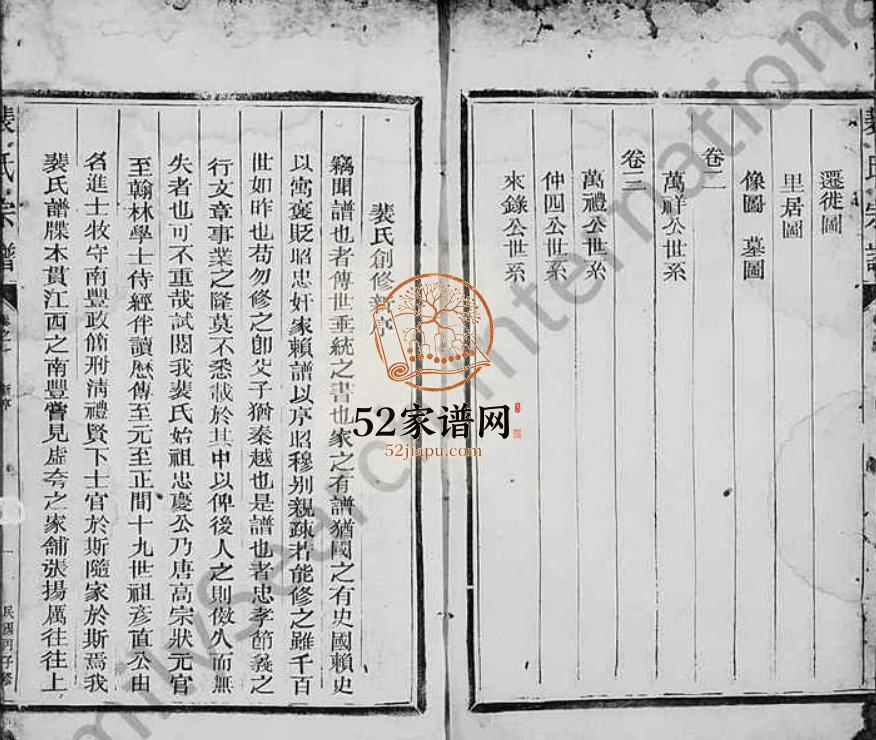 遷徙圖
里居圖
像圖 墓圖
卷二
萬祥公世系
卷三
萬禮公世系
仲四公世系
來錄公世系
裴氏創修新序
竊聞譜也者傳世垂統之書也家之有譜猶國之有史國賴史
以寓褒貶昭忠奸家賴譜以序昭穆别親疎若能修之雖千百
世如昨也苟勿修之卽父子猶秦越也是譜也者忠孝節義之
行文章事業之隆莫不悉載於其中以俾後人之則傚久而無
失者也可不重哉試閱我裴氏始祖忠慶公乃唐高宗狀元官
至翰林學士侍經伴讀歷傳至元至正間十九世祖彥直公由
名進士牧守南豐政簡刑淸禮賢下士官於斯隨家於斯焉我
裴氏譜牒本貫江西之南豐嘗見虛夸之家舖張揚厲往往上
裴氏宗譜
新序
一
民國丙子修
52家谱网
52jiapu.com
International